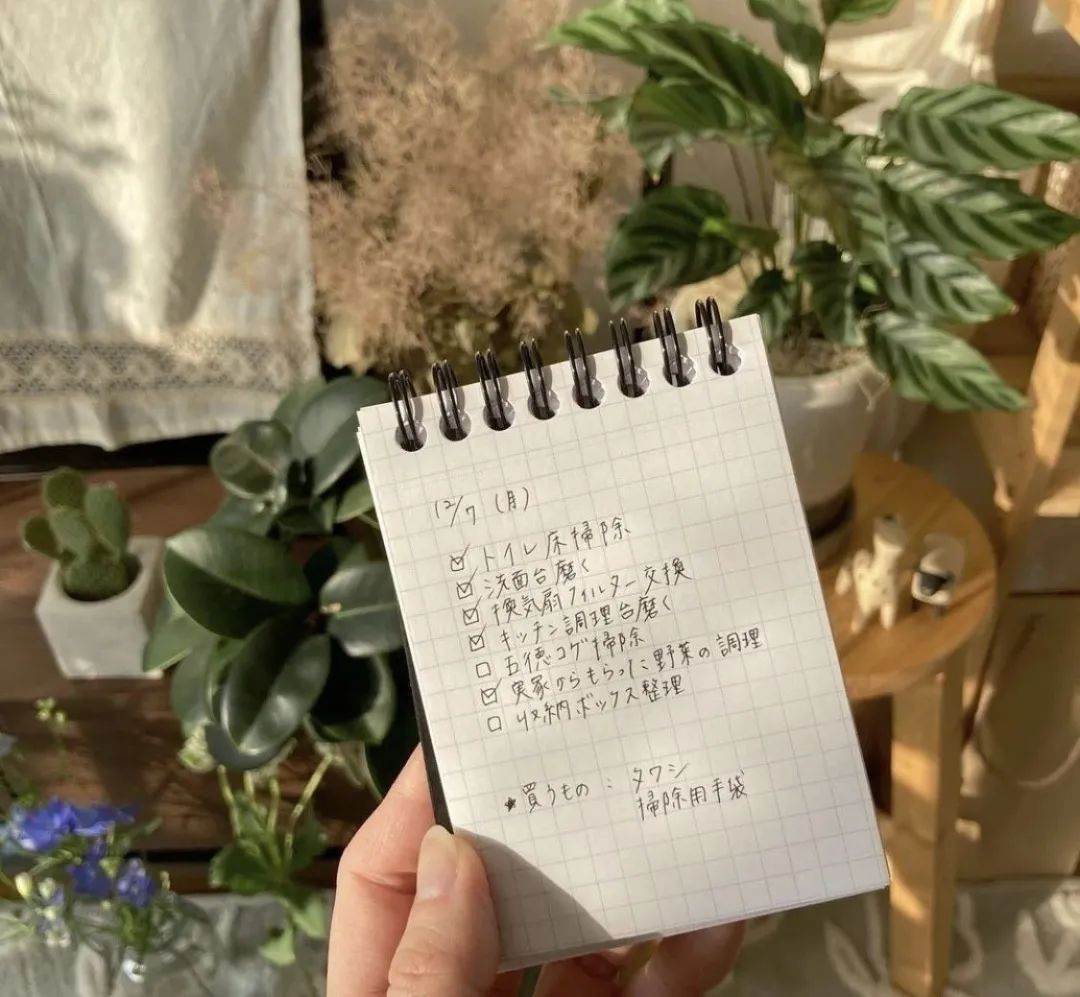 12/7 (月)
☑ トイレ床掃除
☑ 洗面台磨く
☑ 換気扇フィルター交換
☑ キッチン調理台磨く
☐ 五徳コゲ掃除
☑ 実家からもらった野菜の調理
☐ 収納ボックス整理
★買うもの : タワシ
掃除用手袋